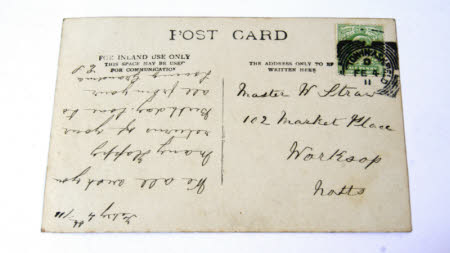 POST CARD
FOR INLAND USE ONLY
THIS SPACE MAY BE USED
FOR COMMUNICATION
THE ADDRESS ONLY TO BE
WRITTEN HERE
FE 4
11
Master W Straw
102 Market Place
Worksop
Notts
Feby 4th/11
We all wish you
many Happy
returns of your
Birthday love to
all from your
loving Grandma